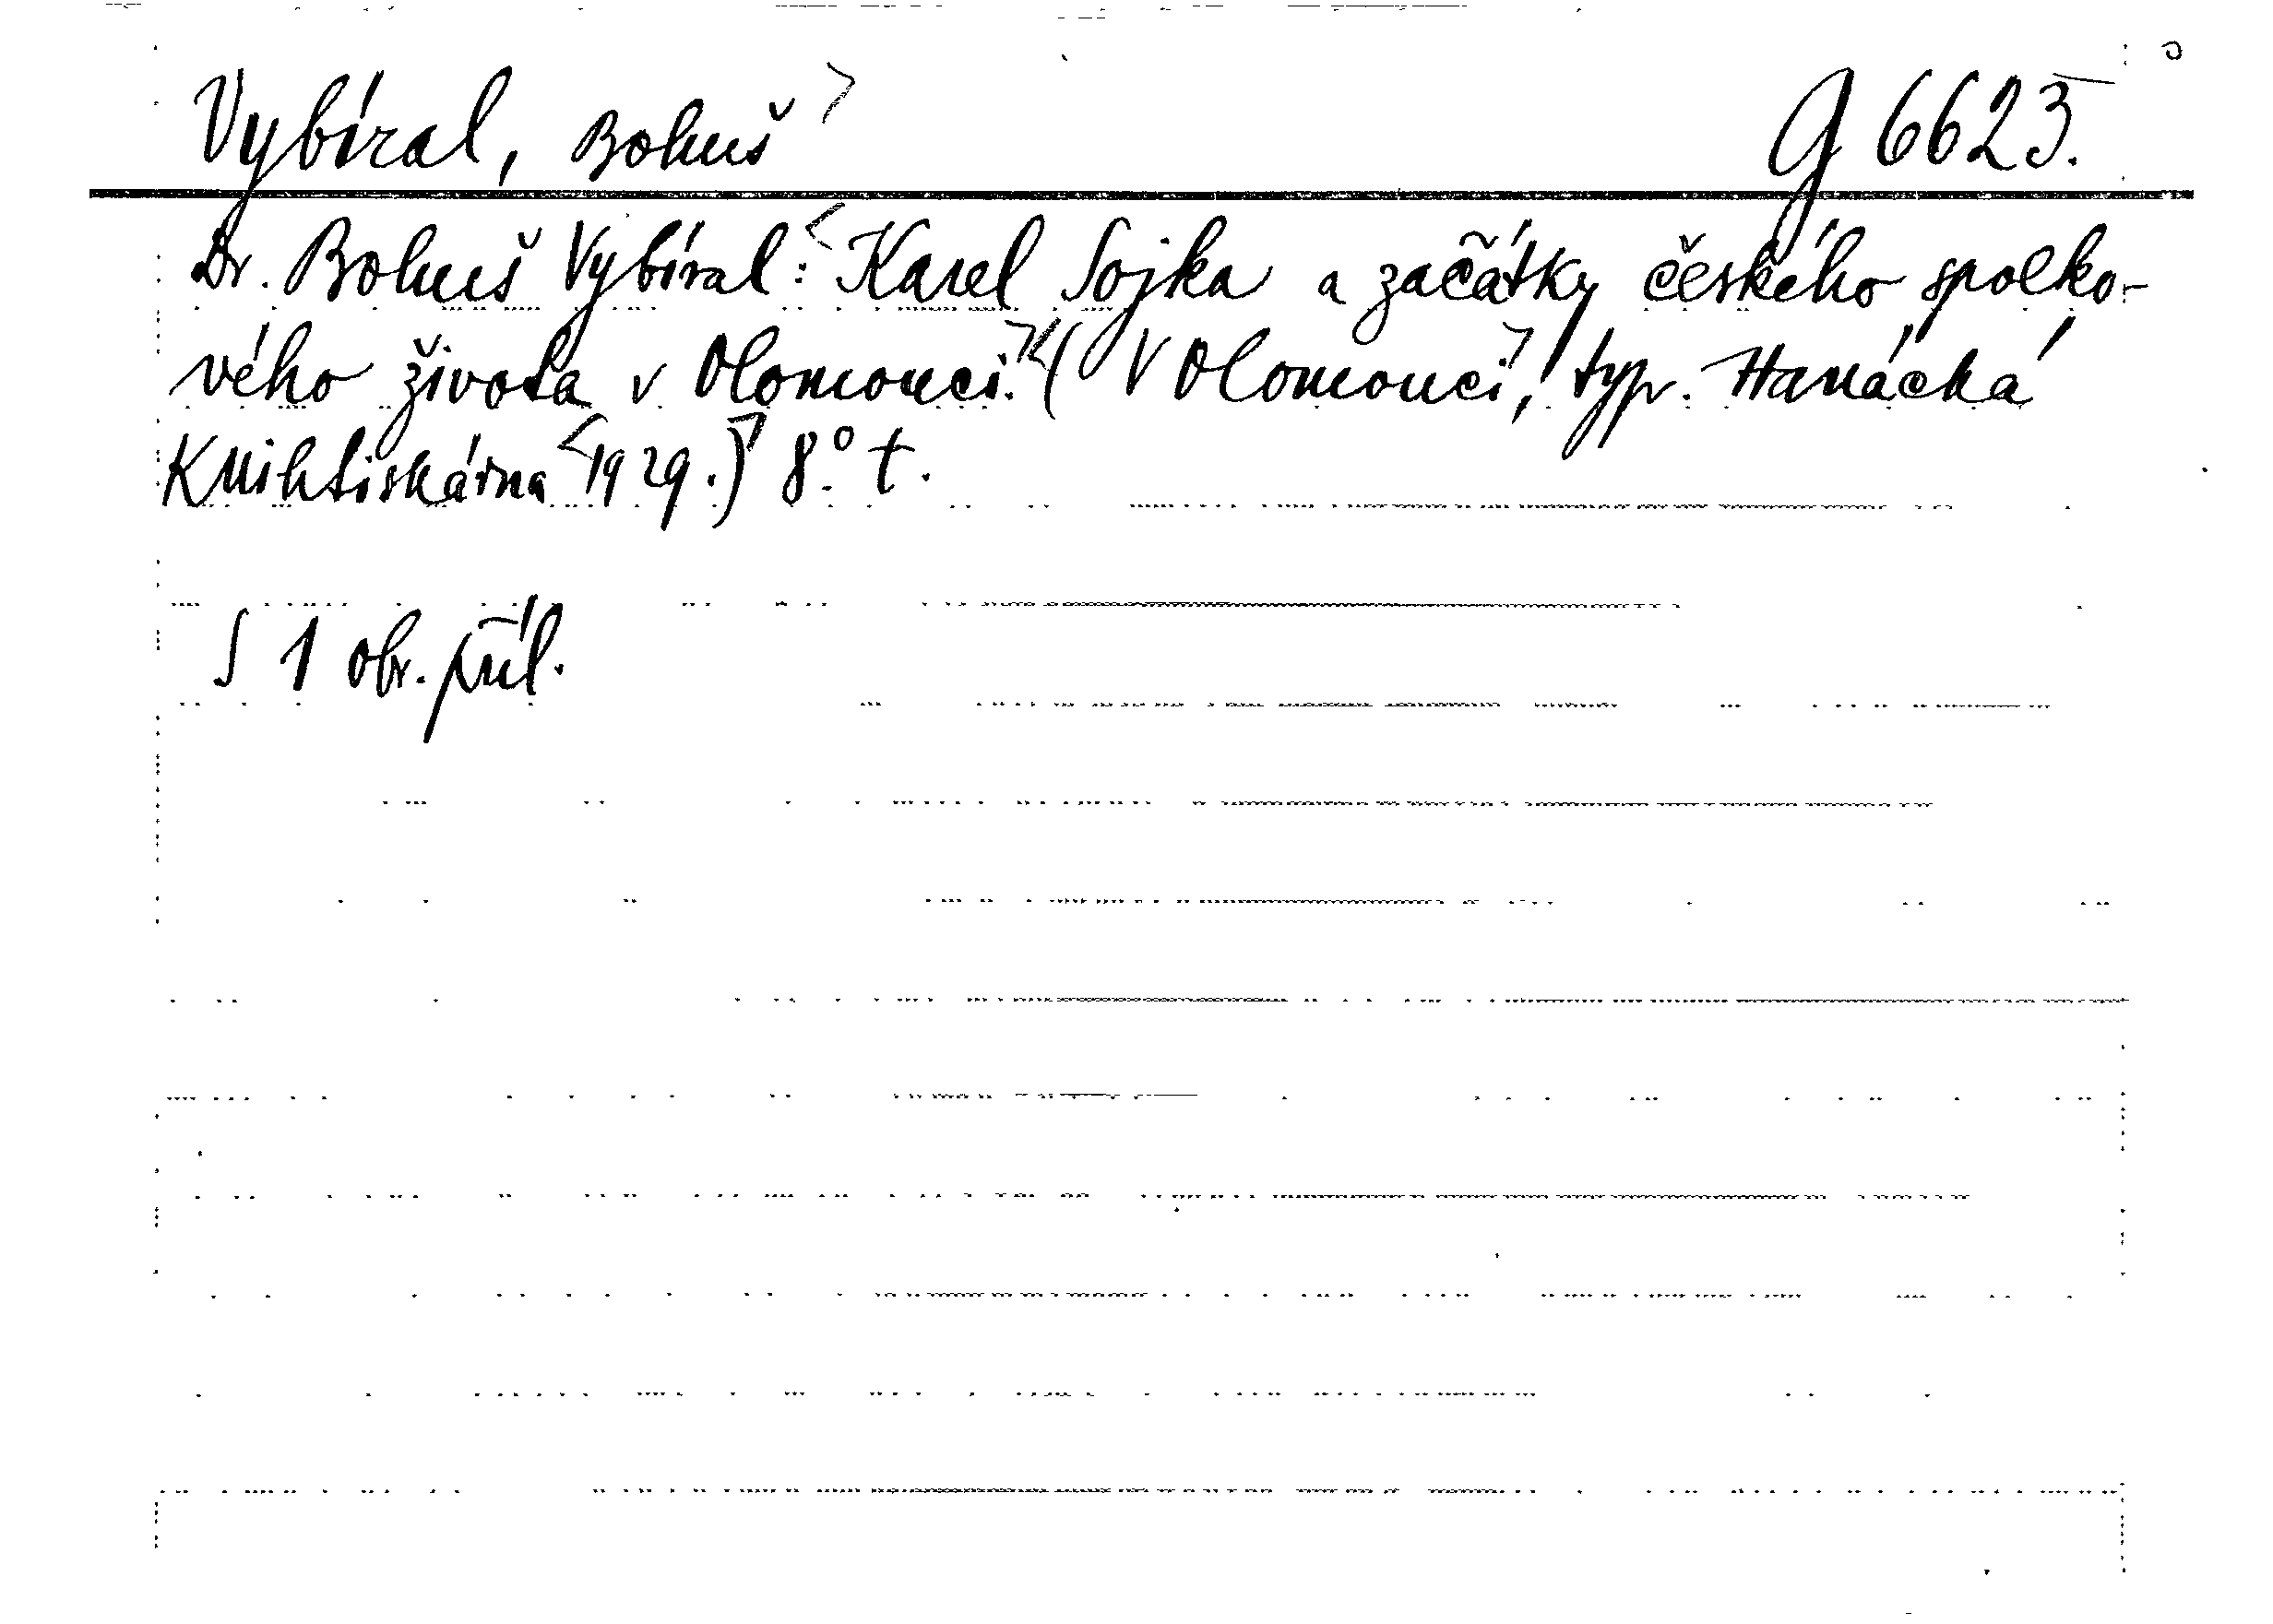 Vybíral, Bohuš> G 6625.
Dr. Bohuš Vybíral: <Karel Sojka a začátky českého spolko-
vého života v Olomouci.> <(V Olomouci,> typ. Hanácká
Knihtiskárna <1929.)> 8° t.
S 1 obr. příl.